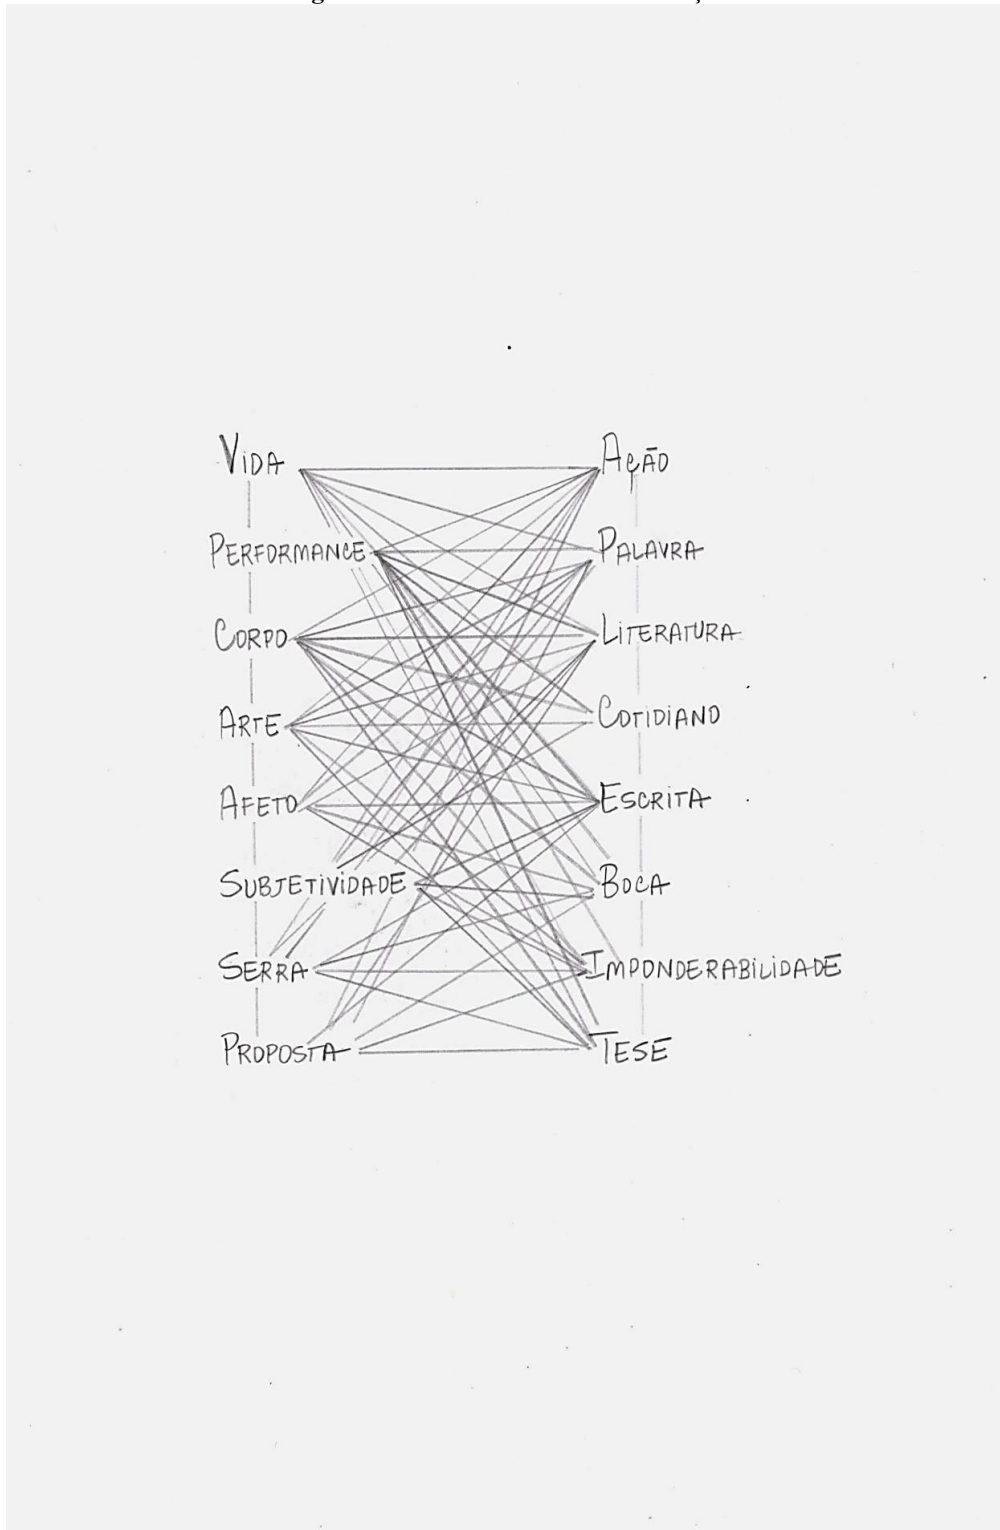 Vida
Performance
Corpo
Arte
Afeto
Subjetividade
Serra
Proposta
Ação
Palavra
Literatura
Cotidiano
Escrita
Boca
Imponderabilidade
Tese